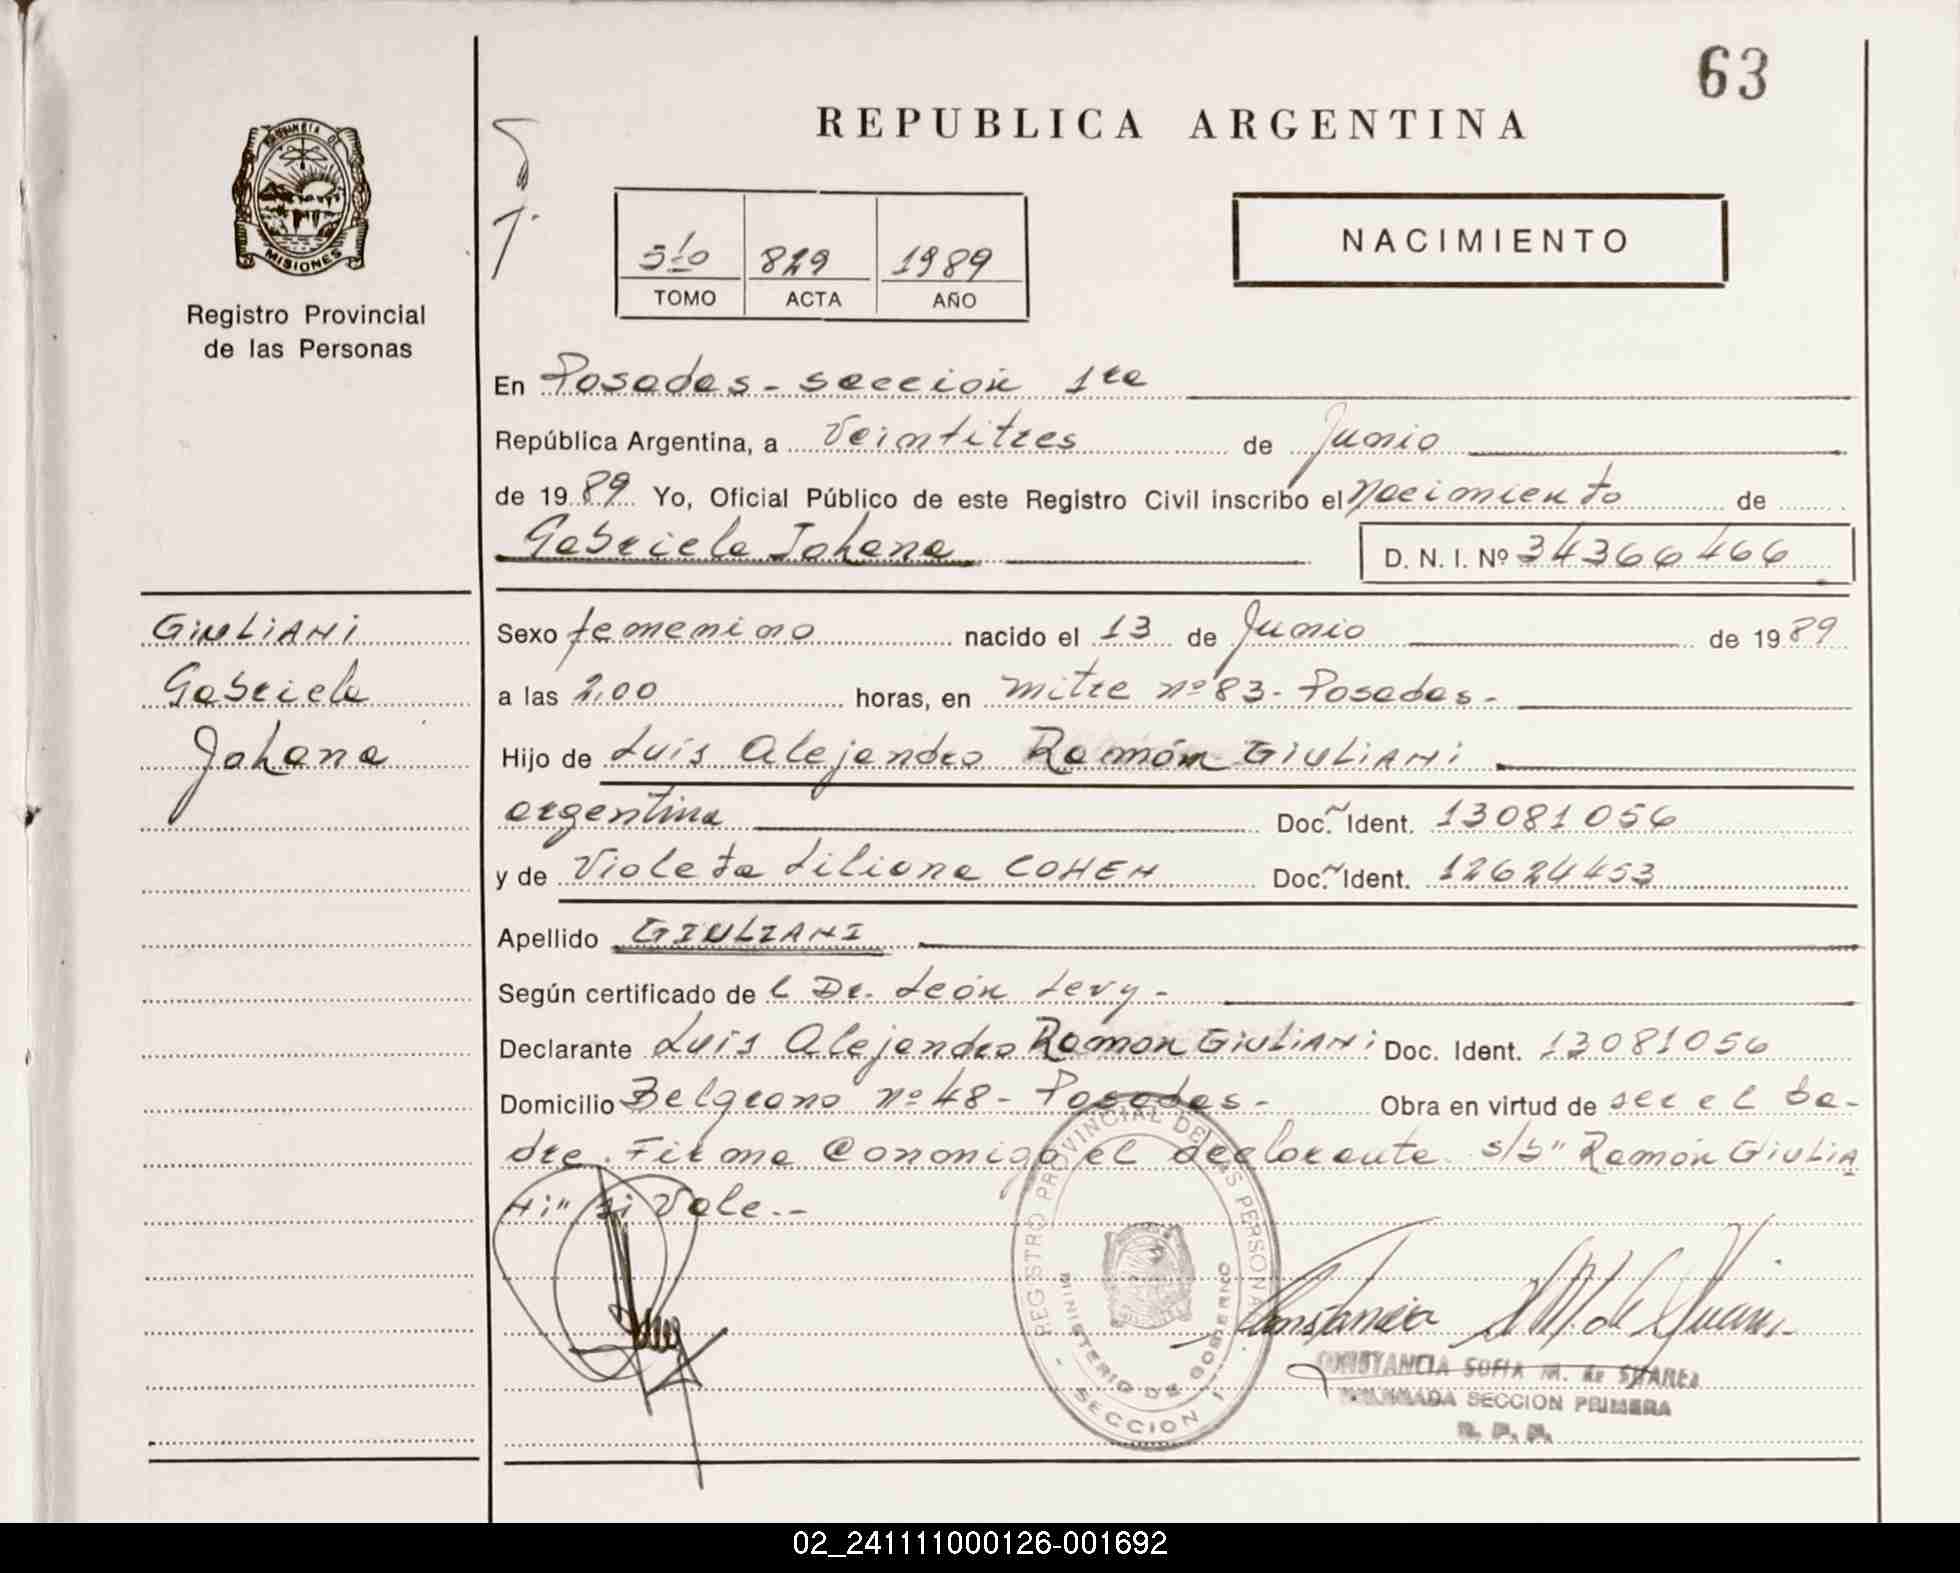 63
REPUBLICA ARGENTINA
PROVINCIA D
MISIONES
Registro Provincial
de las Personas
5to 829 1989
TOMO ACTA AÑO
NACIMIENTO
En Posadas - sección 1ra
República Argentina, a Veintitres de Junio
de 1989 Yo, Oficial Público de este Registro Civil inscribo el Nacimiento de
Gabriela Johana D. N. I. Nº 34366466
GIULIANI
Gabriela
Johana
Sexo femenino nacido el 13 de Junio de 1989
a las 2,00 horas, en Mitre nº 83 - Posadas -
Hijo de Luis Alejandro Ramón GIULIANI
argentina Doc. Ident. 13081056
y de Violeta Liliana COHEN Doc. Ident. 12624453
Apellido GIULIANI
Según certificado de l Dr. León Levy -
Declarante Luis Alejandro Ramon GIULIANI Doc. Ident. 13081056
Domicilio Belgrano nº 48 - Posadas - Obra en virtud de ser el Pa-
dre. Firma Conmigo el declarante s/b "Ramón Giulia
ni" si Vale.-
REGISTRO PROVINCIAL DE LAS PERSONAS
MINISTERIO DE GOBIERNO
SECCION 1
Constancia S M. de Suarez
CONSTANCIA SOFIA M. de SUAREZ
DELEGADA SECCION PRIMERA
R. P. P.
02_241111000126-001692